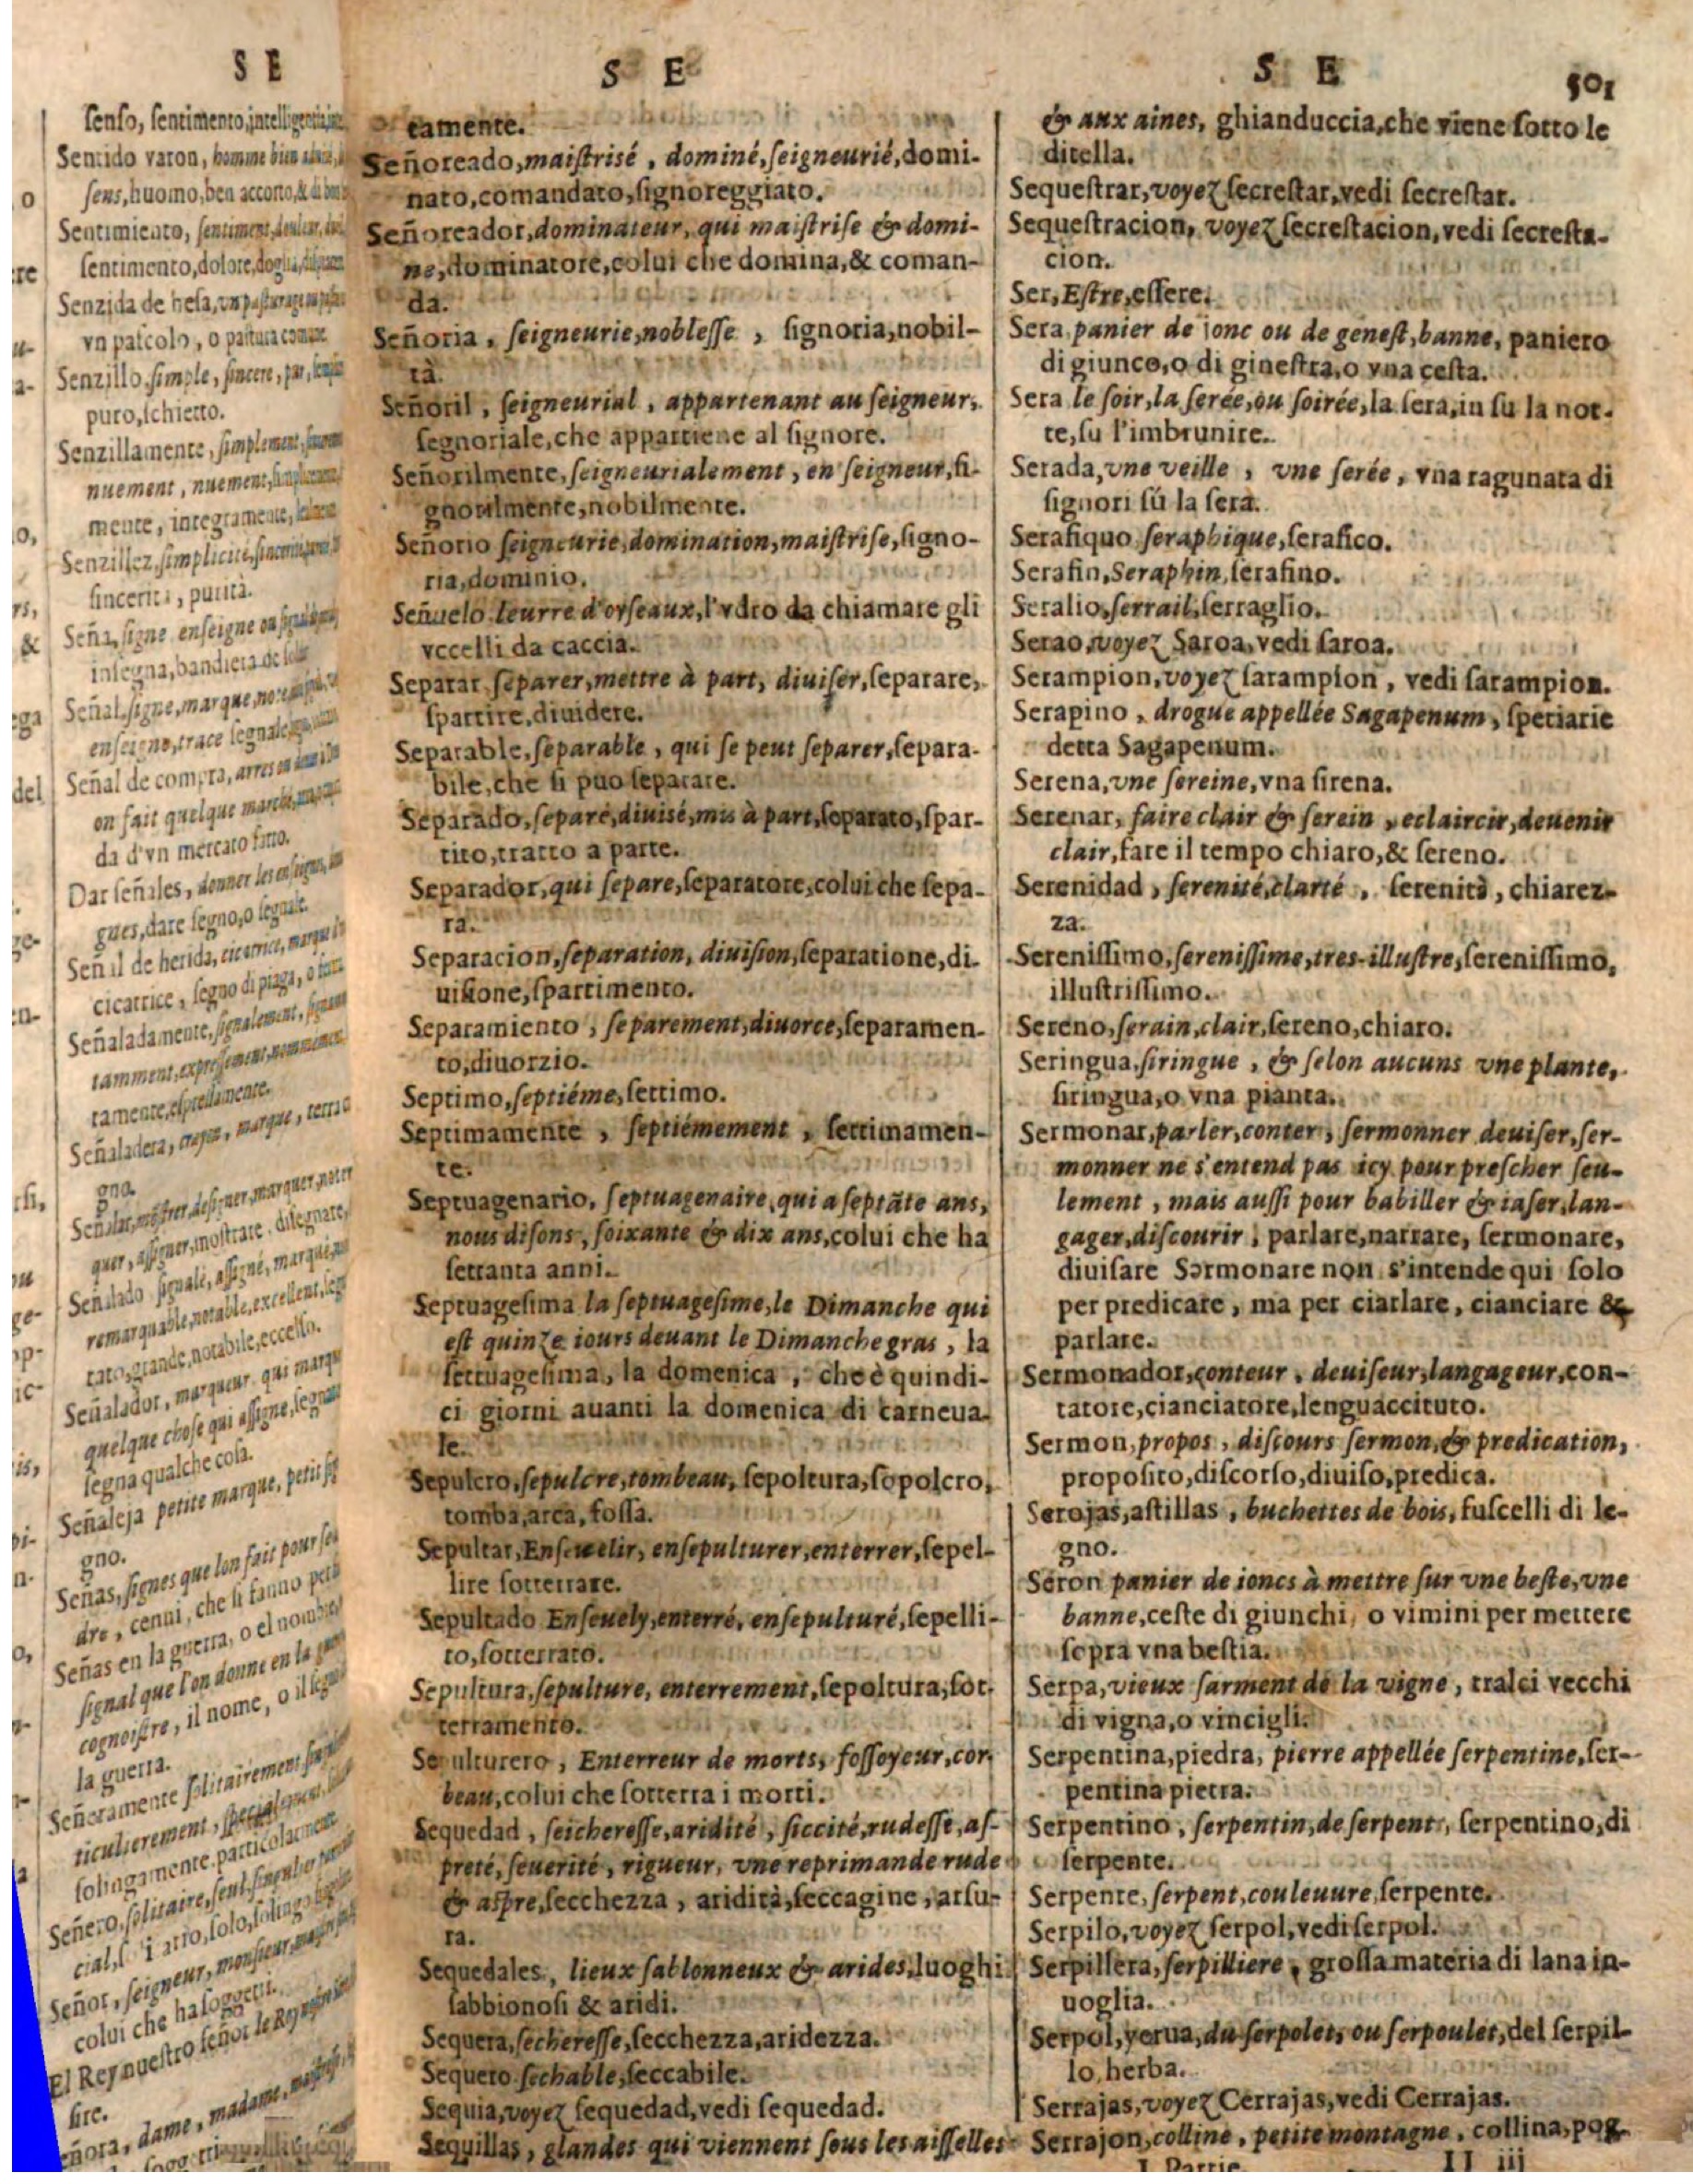 S E
senso, sentimento, intelligentia
Sentido varon, homme bien
sens, huomo, ben accorto, & di
Sentimiento, sentiment, douleur,
sentimento, dolore, doglia,
Senzida de hesa, vn pasturage
vn pascolo, o pastura
Senzillo. simple, sincere, pur,
puro, schietto.
Senzillamente, simplement,
nuement, nuement,
mente, integramente,
Senzillez, simplicité,
sincerità, purità.
Seña, signe enseigne ou
insegna, bandiera
Señal, signe, marque, note
enseigne, trace segnale,
Señal de compra, arres
on fait quelque marché,
da d'vn mercato fatto.
Dar señales, donner les enseignes,
gnes, dare segno, o segnale.
Señal de herida, cicatrice, marque
cicatrice, segno di piaga, o
Señaladamente, signalement,
tamment, expressement,
tamente, espressamente.
Señaladera, marque,
gno.
Señalar, designer, marquer, noter
quer, assigner, mostrare, dissegnare,
Señalado signalé, assigné, marqué,
remarquable, notable, excellent,
tato, grande, notabile, eccelso.
Señalador, marqueur, qui marque
quelque chose qui assigne,
segna qualche cosa.
Señaleja petite marque, petit
gno.
Señas, signes que lon fait pour
dre, cenni, che si fanno
Señas en la guerra, o el nombre
signal que l'on donne en la
cognoistre, il nome, o il
la guerra.
Señeramente solitairement
ticulierement,
solingamente. particolarmente
Señero, solitaire, seul, singulier
solo, solingo
Señor, seigneur, monsieur,
colui che ha soggetti.
El Rey nuestro señor le Roy
sire.
dame, madame,
S E
tamente.
Señoreado, maistrisé, dominé, seigneurié, domi-
nato, comandato, signoreggiato.
Señoreador, dominateur, qui maistrise & domi-
ne, dominatore, colui che domina, & coman-
da.
Señoria, seigneurie, noblesse, signoria, nobil-
tà.
Señoril, seigneurial, appartenant au seigneur,
segnoriale, che appartiene al signore.
Señorilmente, seigneurialement, en seigneur, si-
gnorilmente, nobilmente.
Señorio seigneurie, domination, maistrise, signo-
ria, dominio.
Señuelo leurre d'oyseaux, l'vdro da chiamare gli
vccelli da caccia.
Separar separer, mettre à part, diuiser, separare,
spartire, diuidere.
Separable, separable, qui se peut separer, separa-
bile, che si puo separare.
Separado, separé, diuisé, mis à part, soparato, spar-
tito, tratto a parte.
Separador, qui separe, separatore, colui che sepa-
ra.
Separacion, separation, diuision, separatione, di-
uisione, spartimento.
Separamiento, separement, diuorce, separamen-
to, diuorzio.
Septimo, septiéme, settimo.
Septimamente, septiémement, settimamen-
te.
Septuagenario, septuagenaire, qui a septāte ans,
nous disons, soixante & dix ans, colui che ha
settanta anni.
Septuagesima la septuagesime, le Dimanche qui
est quinze iours deuant le Dimanche gras, la
settuagesima, la domenica, che è quindi-
ci giorni auanti la domenica di carneua-
le.
Sepulcro, sepulcre, tombeau, sepoltura, sopolcro,
tomba, arca, fossa.
Sepultar, Enseuelir, ensepulturer, enterrer, sepel-
lire sotterrare.
Sepultado Enseuely, enterré, ensepulturé, sepelli-
to, sotterrato.
Sepultura, sepulture, enterrement, sepoltura, sot-
terramento.
Sepulturero, Enterreur de morts, fossoyeur, cor-
beau, colui che sotterra i morti.
Sequedad, seicheresse, aridité, siccité, rudesse, as-
preté, seuerité, rigueur, vne reprimande rude
& aspre, secchezza, aridità, seccagine, arsu-
ra.
Sequedales, lieux sablonneux & arides, luoghi
sabbionosi & aridi.
Sequera, secheresse, secchezza, aridezza.
Sequero sechable, seccabile.
Sequia, voyez sequedad, vedi sequedad.
Sequillas, glandes qui viennent sous les aisselles
S E 501
& aux aines, ghianduccia, che viene sotto le
ditella.
Sequestrar, voyez secrestar, vedi secrestar.
Sequestracion, voyez secrestacion, vedi secresta-
cion.
Ser, Estre, essere.
Sera panier de ionc ou de genest, banne, paniero
di giunco, o di ginestra, o vna cesta.
Sera le soir, la serée, ou soirée, la sera, in su la not-
te, su l'imbrunire.
Serada, vne veille, vne serée, vna ragunata di
signori sù la sera.
Serafiquo seraphique, serafico.
Serafin, Seraphin, serafino.
Seralio, serrail, serraglio.
Serao, voyez Saroa, vedi saroa.
Serampion, voyez sarampion, vedi sarampion.
Serapino, drogue appellée Sagapenum, spetiarie
detta Sagapenum.
Serena, vne sereine, vna sirena.
Serenar, faire clair & serein, eclaircir, deuenir
clair, fare il tempo chiaro, & sereno.
Serenidad, serenité, clarté, serenità, chiarez-
za.
Serenissimo, serenissime, tres-illustre, serenissimo,
illustrissimo.
Sereno, serain, clair, sereno, chiaro.
Seringua, siringue, & selon aucuns vne plante,
siringua, o vna pianta.
Sermonar, parler, conter, sermonner deuiser, ser-
monner ne s'entend pas icy pour prescher seu-
lement, mais aussi pour babiller & iaser, lan-
gager, discourir, parlare, narrare, sermonare,
diuisare Sormonare non s'intende qui solo
per predicare, ma per ciarlare, cianciare &
parlare.
Sermonador, conteur, deuiseur, langageur, con-
tatore, cianciatore, lenguaccituto.
Sermon, propos, discours sermon, & predication,
proposito, discorso, diuiso, predica.
Serojas, astillas, buchettes de bois, fuscelli di le-
gno.
Seron panier de ioncs à mettre sur vne beste, vne
banne, ceste di giunchi, o vimini per mettere
sopra vna bestia.
Serpa, vieux sarment de la vigne, tralci vecchi
di vigna, o vincigli.
Serpentina, piedra, pierre appellée serpentine, ser-
pentina pietra.
Serpentino, serpentin, de serpent, serpentino, di
serpente.
Serpente, serpent, couleuure, serpente.
Serpilo, voyez serpol, vedi serpol.
Serpillera, serpilliere, grossa materia di lana in-
uoglia.
Serpol, yerua, du serpolet, ou serpoulet, del serpil-
lo, herba.
Serrajas, voyez Cerrajas, vedi Cerrajas.
Serrajon, colline, petite montagne, collina, pog-
I. Partie. II iij